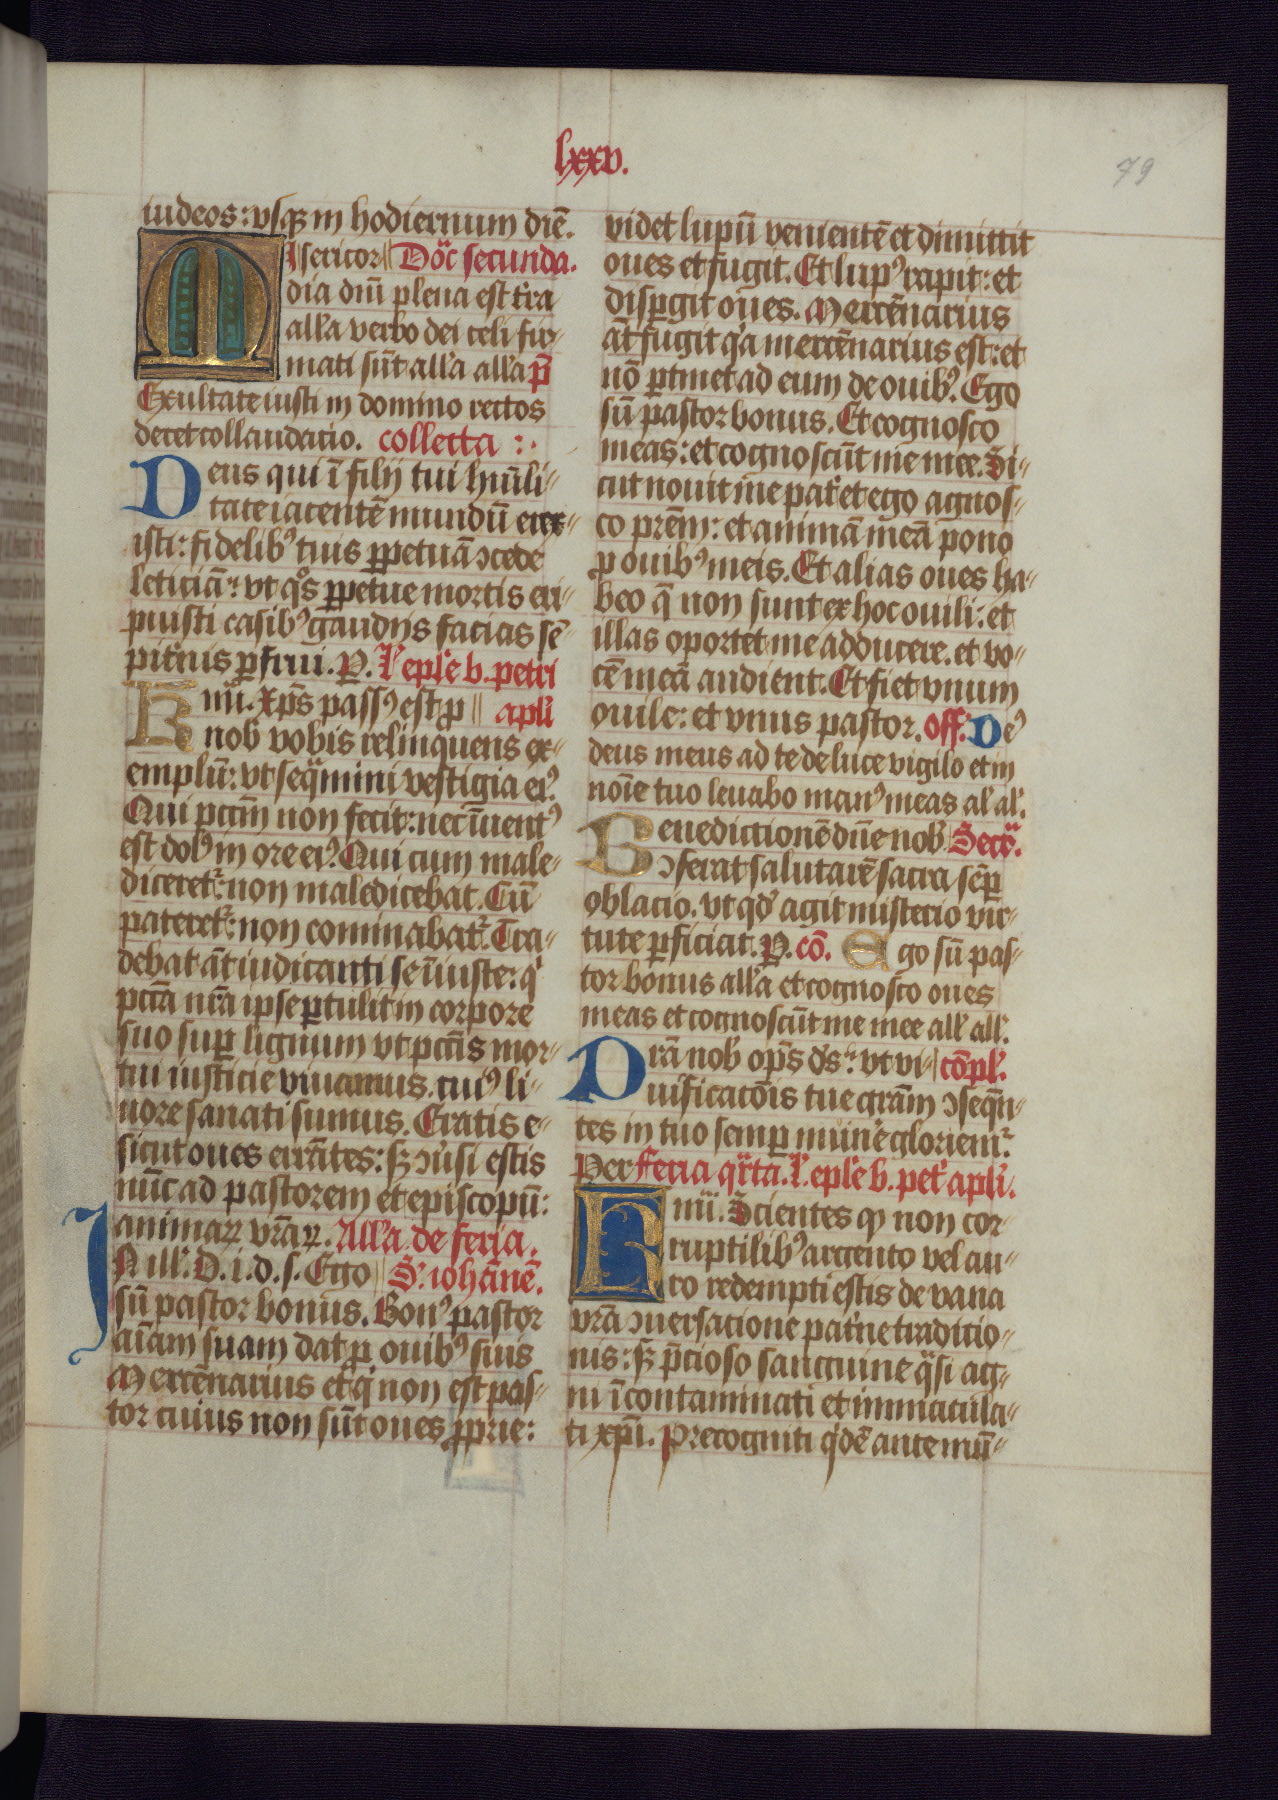 lxxv.
79
iudeos: vsqꝫ in hodiernum diē.
Misericor Doc̄ secunda.
dia dnī plena est tr̄a
all'a verbo dei celi fir-
mati sūt all'a all'a ps̄
Exultate iusti in domino rectos
decet collaudacio. collecta :·
Deus qui ī filij tui hūīli-
tate iacentē mundū erex-
isti: fidelibꝰ tuis ꝑpetuā ꝯcede
leticiā: vt qͦs ꝑpetue mortis eri-
puisti casibꝰ gaudijs facias sē-
pit'nis ꝑfrui. P. L' epl'e b. petri
Krmī. Xpc̄s passꝰ est ꝓ apl'i
nob' vobis relinquens ex-
emplū: vt seqͣmini vestigia eiꝰ.
Qui pctm̄ non fecit: nec īuentꝰ
est dolꝰ in ore eiꝰ. Qui cum male-
diceret': non maledicebat. Cū
pateret': non cominabat'. Tra-
debat āt iudicanti se īiuste: qͥ
pctā nrā ipse ꝑtulit in corpore
suo suꝑ lignum vt pctīs mor-
tui iusticie viuamus. cuiꝰ li-
uore sanati sumus. Eratis e-
sicut oues errātes: sꝫ ꝯu'si estis
nūc ad pastorem et episcopū:
animaꝝ vrāꝝ. All'a de feria.
In ill'. D. i. d. s. Ego S' iohānē.
sū pastor bonus. Bonꝰ pastor
aīam suam dat ꝓ ouibꝰ suis
Mercēnarius et qͥ non est pas-
tor cuius non sūt oues ꝓprie:
videt lupū venientē et dimittit
oues et fugit. Et lupꝰ rapit: et
disꝑgit oues. Mercēnarius
āt fugit qͥa mercēnarius est: et
nō ꝑtinet ad eum de ouibꝰ. Ego
sū pastor bonus. Et cognosco
meas: et cognoscūt me mee. Si-
cut nouit me pat' et ego agnos-
co prēm: et animā meā pono
ꝓ ouibꝰ meis. Et alias oues ha-
beo q̄ non sunt ex hoc ouili: et
illas oportet me adducere. et vo-
cē meā audient. Et fiet vnum
ouile: et vnus pastor. off. Deꝰ
deus meus ad te de luce vigilo et in
noīe tuo leuabo manꝰ meas al' al'.
Benedictionē dnē nob' Secͬ.
ꝯferat salutarē sacra sēꝑ
oblacio. vt qd' agit misterio vir-
tute ꝑficiat. P. cō. Ego sū pas-
tor bonus all'a et cognosco oues
meas et cognoscūt me mee all' all'.
Prā nob' oꝑs ds': vt vi- cōpl'.
uificatōis tue grām ꝯseqn̄-
tes in tuo semꝑ mun'e glorient'.
Per Feria qͣrta. L' epl'e b. pet' apl'i.
Krmī. Scientes ꝙ non cor-
ruptilibꝰ argento vel au-
ro redempti estis de vana
vrā ꝯuersacione pat'ne traditio-
nis: sꝫ p̄cioso sanguine qͣsi ag-
ni īcontaminati et immacula-
ti xpī. Precogniti qͥdē ante mū-